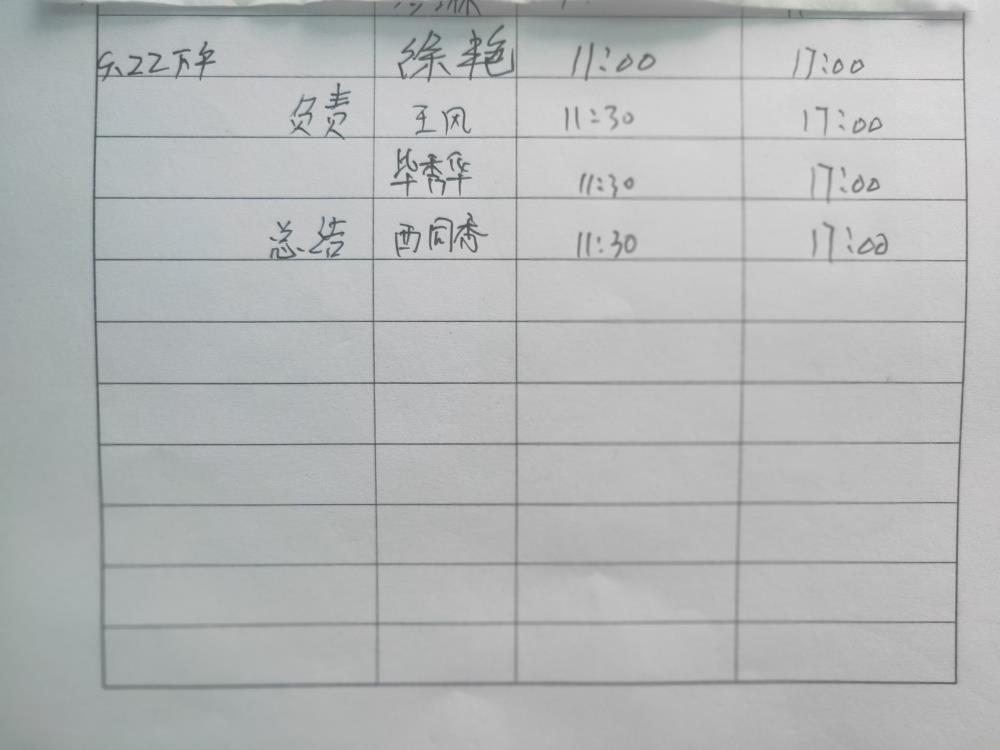 5.22下午 徐艳 11:00 17:00
负责 王风 11:30 17:00
毕秀华 11:30 17:00
总结 西同秀 11:30 17:00